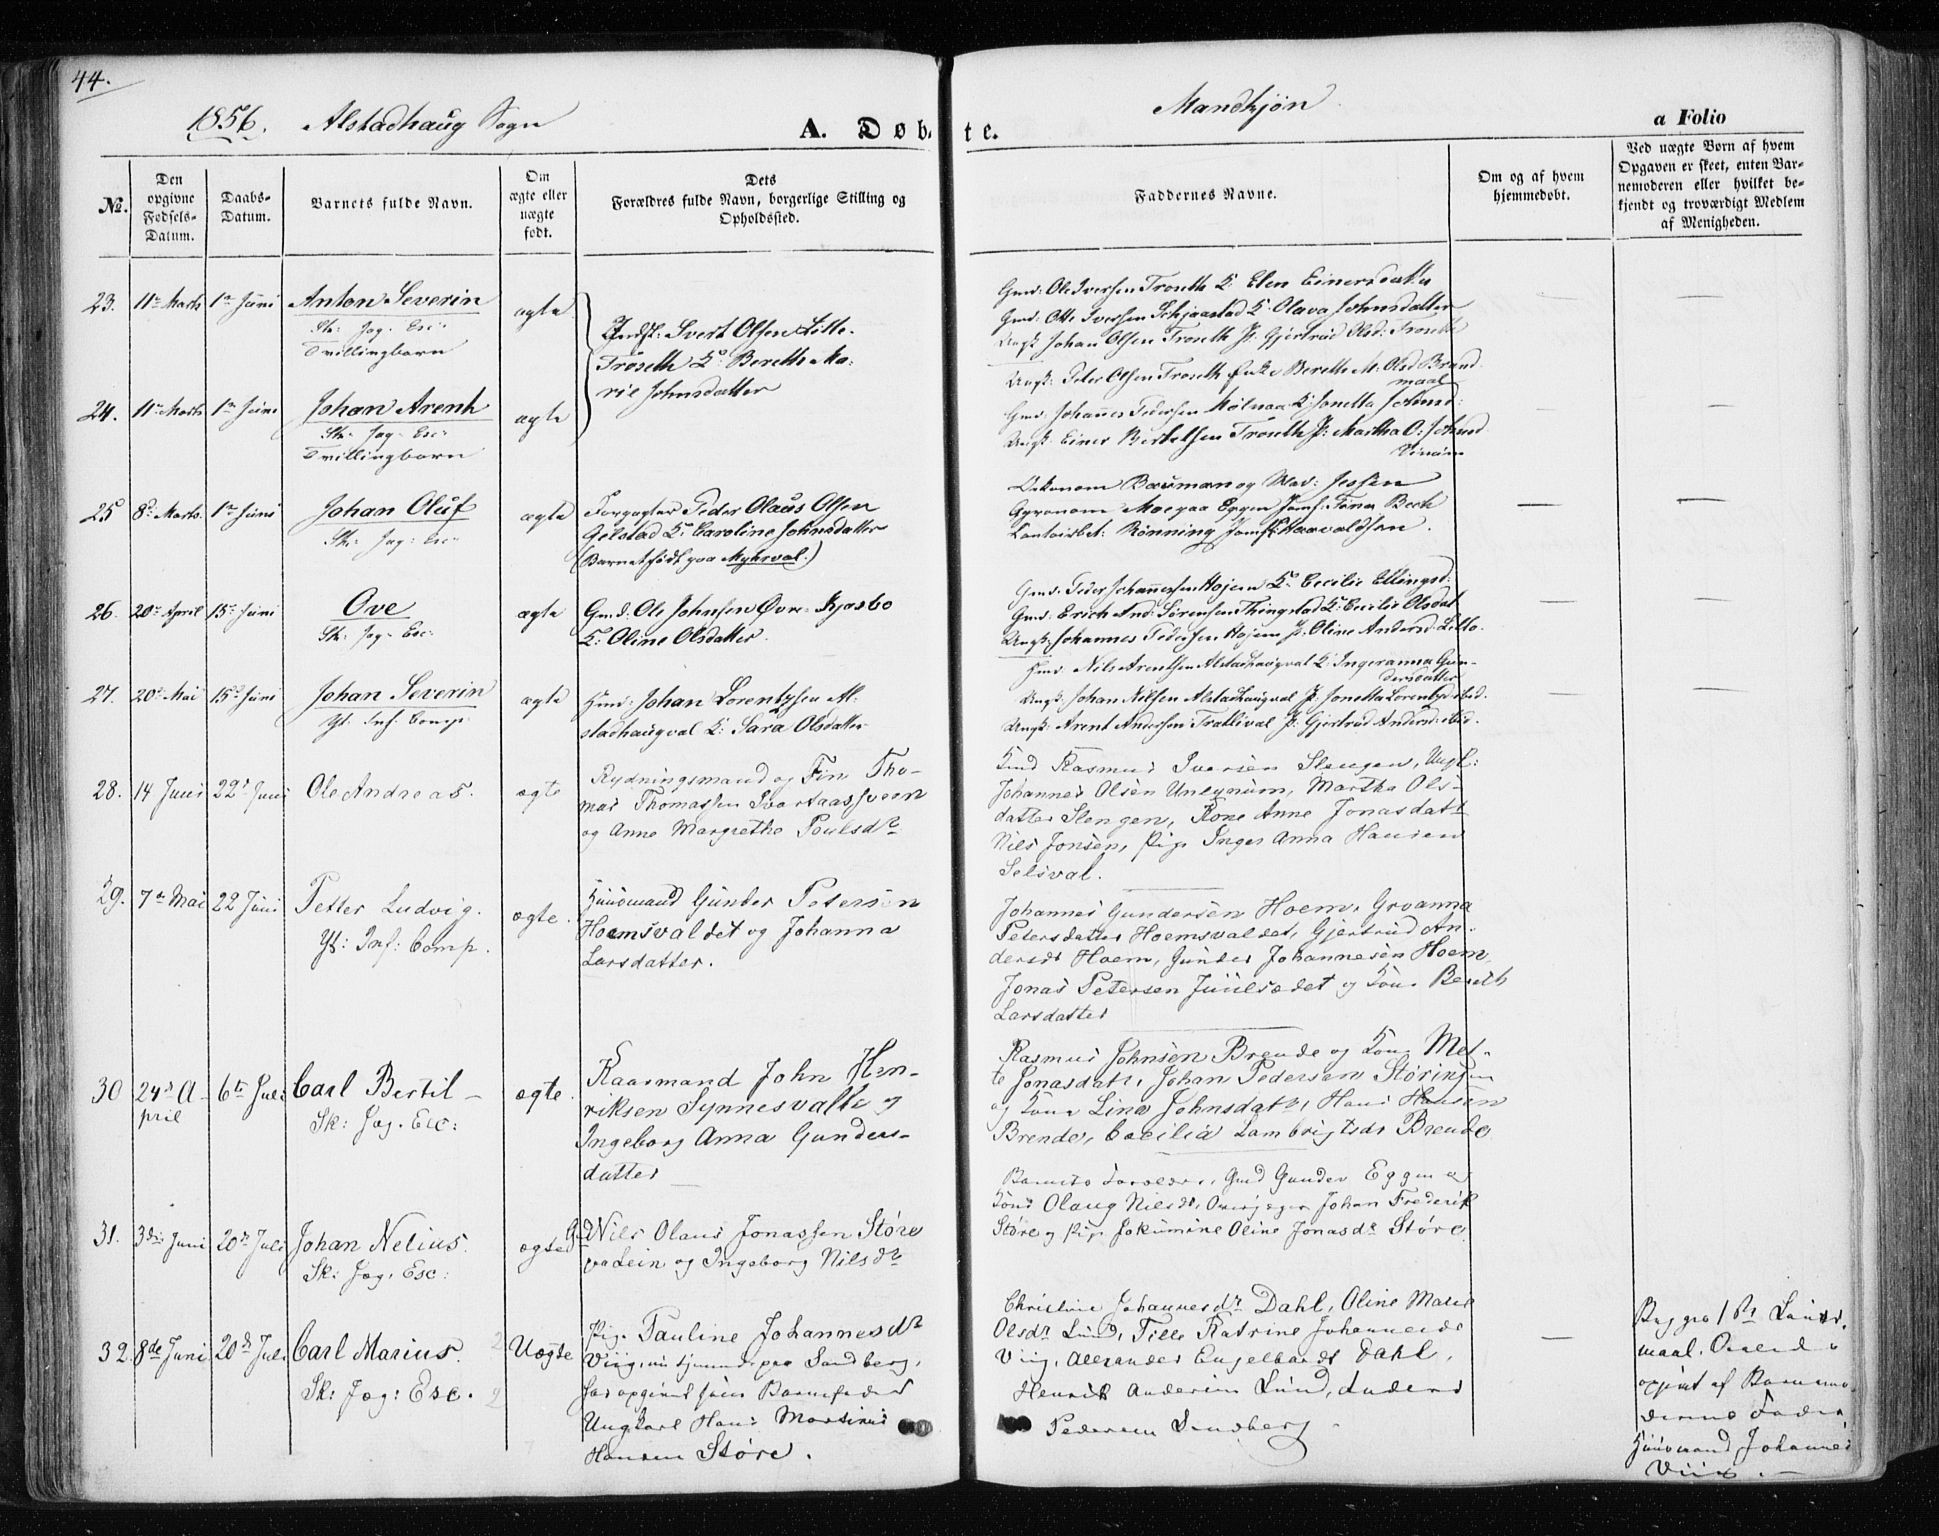 44.
1856. Alstadhaug Sogn
A. Døbte.
Mandkjøn
a Folio
No.
Den opgivne Fødsels-Datum.
Daabs-Datum.
Barnets fulde Navn.
Om ægte eller uægte født.
Dets Forældres fulde Navn, borgerlige Stilling og Opholdssted.
Faddernes Navne.
Om og af hvem hjemmedøbt.
Ved uægte Børn af hvem Opgaven er skeet, enten Barnemoderen eller hvilket bekjendt og troværdigt Medlem af Menigheden.
23. 11te Marts 1te Juni Anton Severin ægte
Sk: Jæg. Esc:
Tvillingbørn
Svert Olsen Litle-
Troseth K. Bereth Ma-
rie Johnsdatter
Gmd: Ole Iversen Troseth K. Elen Einersdatter
Gmd: Otte Iversen Skjaastad K. Olava Johnsdatter
Ungk Johan Olsen Troseth P. Gjertrud Olsd: Troseth
24. 11te Marts 1te Juni Johan Arent ægte
Sk: Jæg. Esc:
Tvillingbørn
Ungk: Peter Olsen Troseth Enke Bereth M. Olsd Brand
maal
Gmd: Johannes Pedersen Molnaa K. Jonetta Johnsd:
Ungk: Einer Bertelsen Troseth P: Martha O: Johnsd
25 8de Marts 1te Juni Johan Oluf ægte
Sk: Jæg: Esc:
Forpagter Peder Olaus Olsen
Gelstad K. Caroline Johnsdatter
(Barnet født paa Myhrval.)
Oekonom Bauman og Mad: Jessen
Eggen Jomf: Bech
Contoirbet: Rønning Jomf: Haavaldsen.
26. 20de April 15de Juni Ove ægte
Sk: Jæg. Esc:
Gmd: Ole Johnsen Øvre
K: Oline Olsdatter.
Gmd: Peder Johannesen Hojem K. Cecilie Ellingsd:
Gmd: Erich And: Sørensen Thingstad K. Cecilie Olsdat
Ungk: Johannes Pedersen Hojem P. Oline Andersd:
27. 20de Mai 15de Juni Johan Severin ægte
Yt. Inf. Comp.
Hmd: Johan Lorentzsen Al-
stadhaugval K: Sara Olsdatter
Hmd. Nils Arentsen Alstadhaugval K. Ingeranna Gun-
dersdatter
Ungk: Johan Nilsen Alstadhaugval P. Jonetta Lorentzd
Ungk: Arent Andersen Trætlival P: Gjertrud Andersd:
28. 14 Juni 22de Juni Ole Andreas. ægte
Rydningsmand og Fin Tho-
mas Thomassen
og Anne Margrethe Poulsdr
Rasmus Iversen Slengen, Ungk:
Johannes Olsen Unlynum, Martha Ols-
datter Slengen, Kone Anne Jonasdatt
Nils Jonsen, Pige Inger Anna Hansen
Selsval.
29. 7de Mai 22 Juni Petter Ludvig. ægte.
Yt: Inf: Comp.
Huusmand Gunder Petersen
Hoemsvaldet og Johanna
Larsdatter.
Johannes Gundersen Hoem,
Petersdatter Hoemsvaldet, Gjertrud An-
dersdr Hoem, Gunder Johannesen Hoem,
Jonas Petersen og Kone Bereth
Larsdatter
30 24de A- 6te Juli Carl Bertil ægte.
pril
Sk: Jæg. Esc:
Kaarmand John Hen-
riksen Synnesvalle og
Ingeborg Anna Gunders-
datter
Rasmus Johnsen Brende og Kone Met-
te Jonasdatr, Johan Pedersen
og Kone Lina Johnsdatr, Hans Hansen
Brende, Cecilia Lambrigtsdr Brende
31. 3die Juni 20de Juli Johan Nelius. ægte
Sk: Jæg. Esc:
Gd Nils Olaus Jonassen Støre
og Ingeborg Nilsdr
Barnets Forældre, Gmd Gunder Eggen og
Kone Olaug Nilsdr, Johan Frederik
Støre og Pige Jokumine Oline Jonasdr Støre
32. 8de Juni 20de Juli Carl Marius. Uægte
Sk: Jæg: Esc.
Pige Pauline Johannesdr
Viig, nu tjenende paa Sandberg,
har opgivet som Barnefader
Ungkarl Hans Martinus
Hansen Støre.
Christine Johannesdr Dahl, Oline Marie
Olsdr Lund, Katrine Johannesdr
Viig, Alexander Engelbardt Dahl,
Henrik Andersen Lund, Anders
Pedersen Sandberg
maal.
opgivet af Barnemo-
derens Fader,
Huusmand Johannes
Viig.